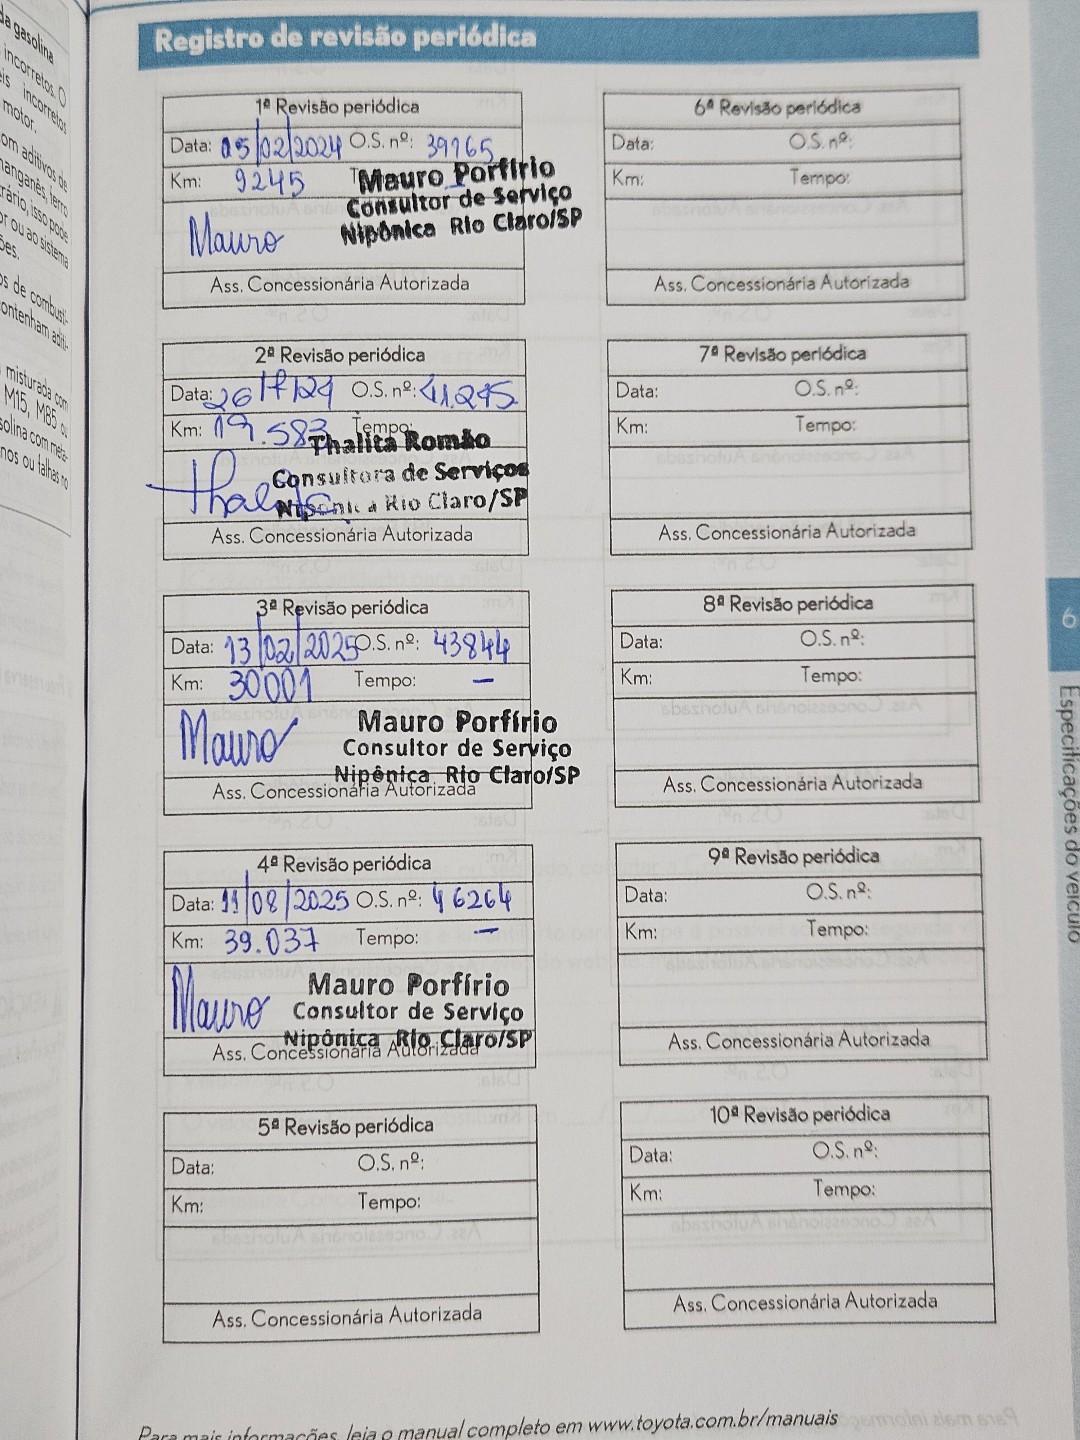 da gasolina
incorretos. O
incorretos
motor.
om aditivos de
manganês, ferro
rário, isso pode
or ou ao sistema
ões.
os de combustí-
ontenham aditi-
misturada com
M15, M85 ou
solina com meta-
nos ou falhas no
Registro de revisão periódica
1ª Revisão periódica
Data: 05/02/2024 O.S. nº: 39165
Km: 9245
Mauro Porfírio
Consultor de Serviço
Nipônica Rio Claro/SP
Mauro
Ass. Concessionária Autorizada
2ª Revisão periódica
Data: 26/7/24 O.S. nº: 41.275
Km: 19.583 Tempo:
Thalita Romão
Consultora de Serviços
Nipônica Rio Claro/SP
Thalita
Ass. Concessionária Autorizada
3ª Revisão periódica
Data: 13/02/2025 O.S. nº: 43844
Km: 30001 Tempo: —
Mauro Porfírio
Consultor de Serviço
Nipônica Rio Claro/SP
Mauro
Ass. Concessionária Autorizada
4ª Revisão periódica
Data: 11/08/2025 O.S. nº: 46264
Km: 39.037 Tempo: —
Mauro Porfírio
Consultor de Serviço
Nipônica Rio Claro/SP
Mauro
Ass. Concessionária Autorizada
5ª Revisão periódica
Data: O.S. nº:
Km: Tempo:
Ass. Concessionária Autorizada
6ª Revisão periódica
Data: O.S. nº:
Km: Tempo:
Ass. Concessionária Autorizada
7ª Revisão periódica
Data: O.S. nº:
Km: Tempo:
Ass. Concessionária Autorizada
8ª Revisão periódica
Data: O.S. nº:
Km: Tempo:
Ass. Concessionária Autorizada
9ª Revisão periódica
Data: O.S. nº:
Km: Tempo:
Ass. Concessionária Autorizada
10ª Revisão periódica
Data: O.S. nº:
Km: Tempo:
Ass. Concessionária Autorizada
6
Especificações do veículo
Para mais informações, leia o manual completo em www.toyota.com.br/manuais